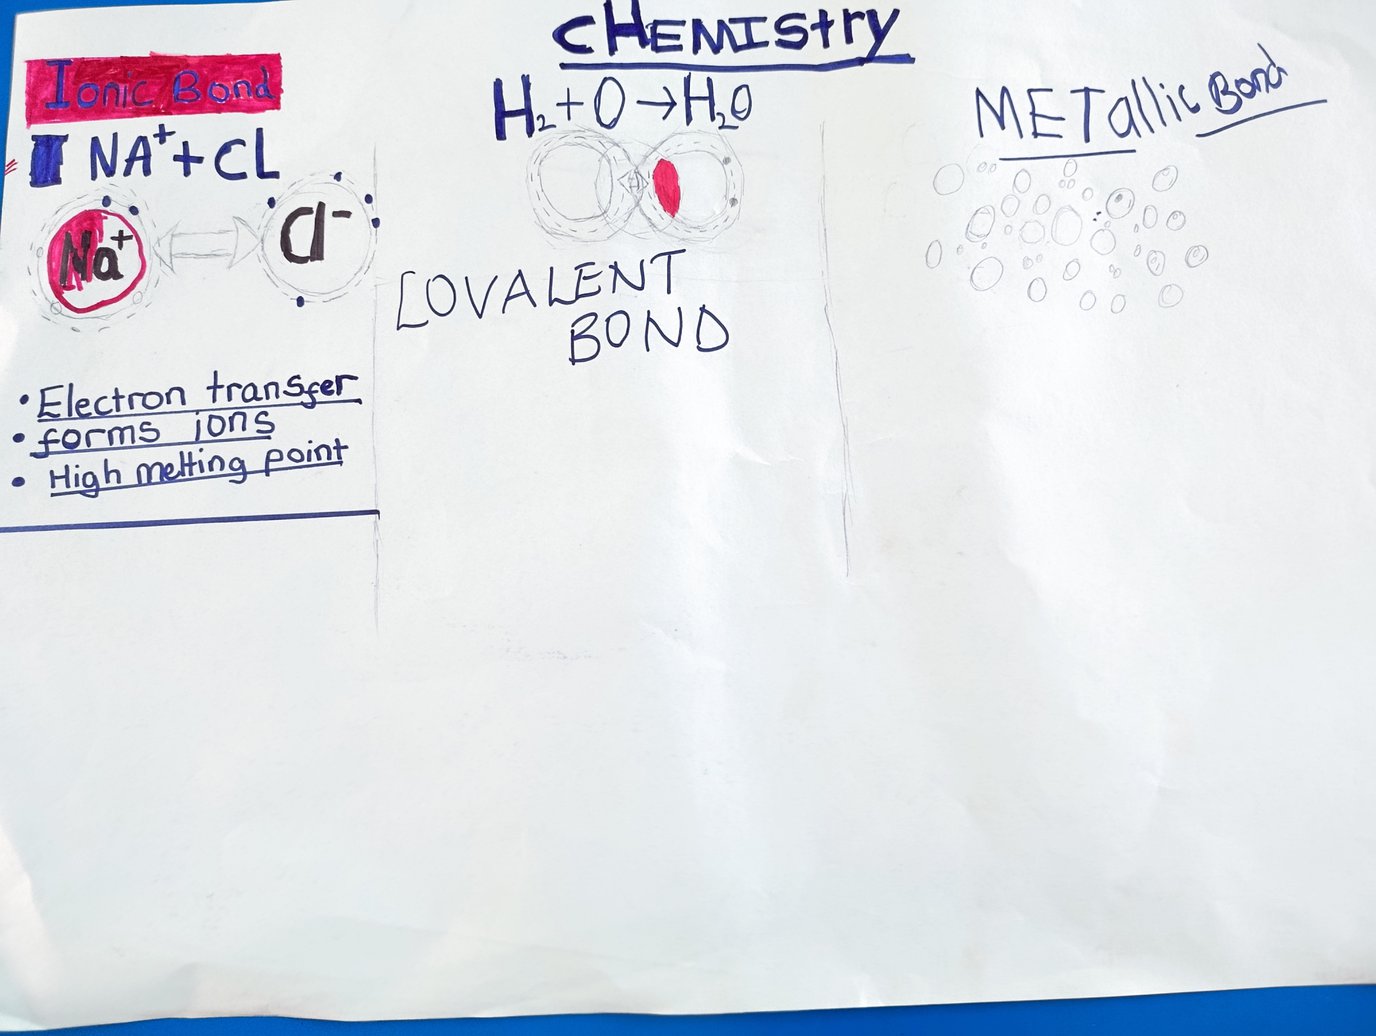 CHEMIStry
Ionic Bond
NA⁺+CL
Na⁺
Cl⁻
• Electron transfer
• forms ions
• High melting point
H₂+O→H₂O
COVALENT
BOND
METallic Bond